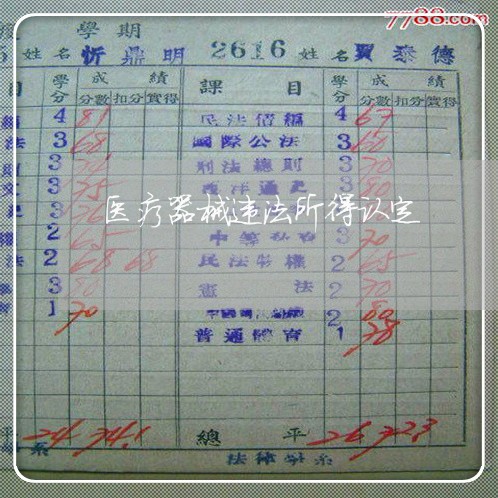 7788.com
學期
姓名 忻鼎明 2616 姓名 賈泰德
目 學分 成績 課目 學分 成績
分數 扣分 實得 分數 扣分 實得
4 81 民法債編 4 67
法 3 68 國際公法 3 60
3 刑法總則 3 70
3 75 3 80
医疗器械违法所得认定
2 65 3 70
法 2 68 68 民法物權 2 65
3 80 憲法 2 70
1 70 2 80
普通體育 1 78
平 24 74.1 總平 26 72.3
系 法律學系